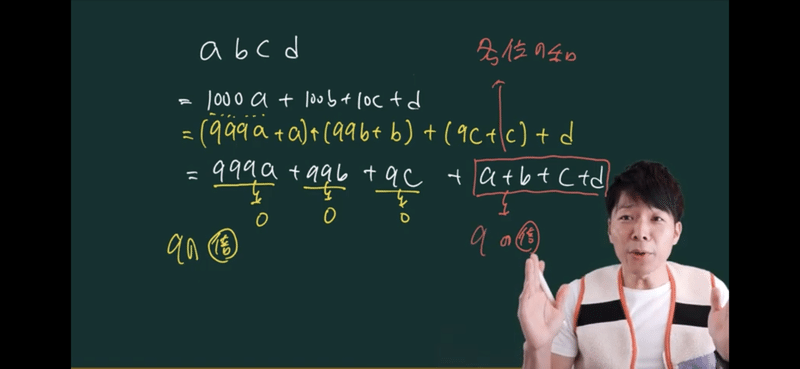 abcd
各位の和
= 1000a + 100b + 10c + d
= (999a + a) + (99b + b) + (9c + c) + d
= 999a + 99b + 9c + a + b + c + d
0 0 0
9の倍 9の倍